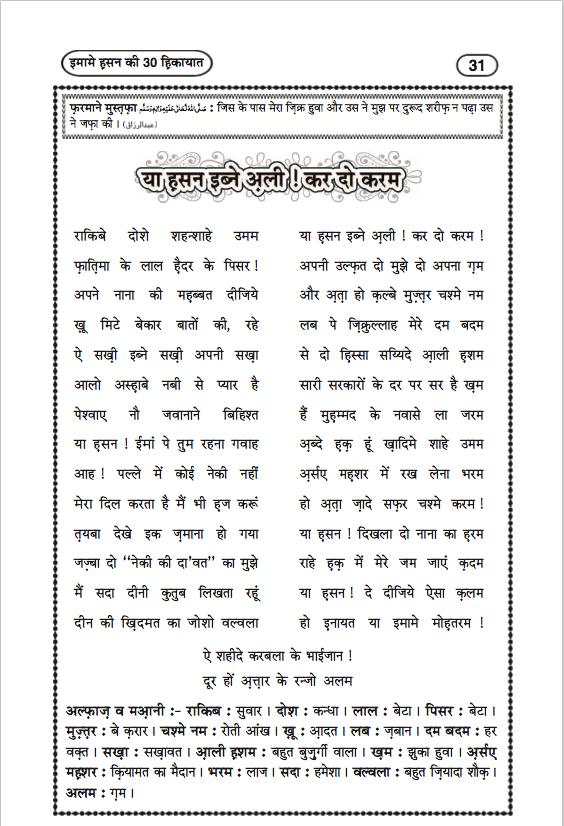 इमामे ह़सन की 30 ह़िकायात
31
फ़रमाने मुस्त़फ़ा صَلَّى اللهُ تَعَالٰى عَلَيْهِ وَاٰلِهٖ وَسَلَّم : जिस के पास मेरा ज़िक्र हुवा और उस ने मुझ पर दुरूद शरीफ़ न पढ़ा उस
ने जफ़ा की । (عبدالرزاق)
या ह़सन इब्ने अ़ली ! कर दो करम
राकिबे दोशे शहन्शाहे उमम या ह़सन इब्ने अ़ली ! कर दो करम !
फ़ात़िमा के लाल ह़ैदर के पिसर ! अपनी उल्फ़त दो मुझे दो अपना ग़म
अपने नाना की मह़ब्बत दीजिये और अ़त़ा हो क़ल्बे मुज़्त़र चश्मे नम
ख़ू मिटे बेकार बातों की, रहे लब पे ज़िक्रुल्लाह मेरे दम बदम
ऐ सख़ी इब्ने सख़ी अपनी सख़ा से दो ह़िस्सा सय्यिदे आ़ली ह़शम
आलो अस्ह़ाबे नबी से प्यार है सारी सरकारों के दर पर सर है ख़म
पेश्वाए नौ जवानाने बिहिश्त हैं मुह़म्मद के नवासे ला जरम
या ह़सन ! ईमां पे तुम रहना गवाह अ़ब्दे ह़क़ हूं ख़ादिमे शाहे उमम
आह ! पल्ले में कोई नेकी नहीं अ़र्सए मह़शर में रख लेना भरम
मेरा दिल करता है मैं भी ह़ज करूं हो अ़त़ा ज़ादे सफ़र चश्मे करम !
त़यबा देखे इक ज़माना हो गया या ह़सन ! दिखला दो नाना का ह़रम
जज़्बा दो “नेकी की दा'वत” का मुझे राहे ह़क़ में मेरे जम जाएं क़दम
मैं सदा दीनी कुतुब लिखता रहूं या ह़सन ! दे दीजिये ऐसा क़लम
दीन की ख़िदमत का जोशो वल्वला हो इनायत या इमामे मोह़तरम !
ऐ शहीदे करबला के भाईजान !
दूर हों अ़त़्त़ार के रन्जो अलम
अल्फ़ाज़ व मआ़नी :- राकिब : सुवार । दोश : कन्धा । लाल : बेटा । पिसर : बेटा ।
मुज़्त़र : बे क़रार । चश्मे नम : रोती आंख । ख़ू : आ़दत । लब : ज़बान । दम बदम : हर
वक़्त । सख़ा : सख़ावत । आ़ली ह़शम : बहुत बुज़ुर्गी वाला । ख़म : झुका हुवा । अ़र्सए
मह़शर : क़ियामत का मैदान । भरम : लाज । सदा : हमेशा । वल्वला : बहुत ज़ियादा शौक़ ।
अलम : ग़म ।